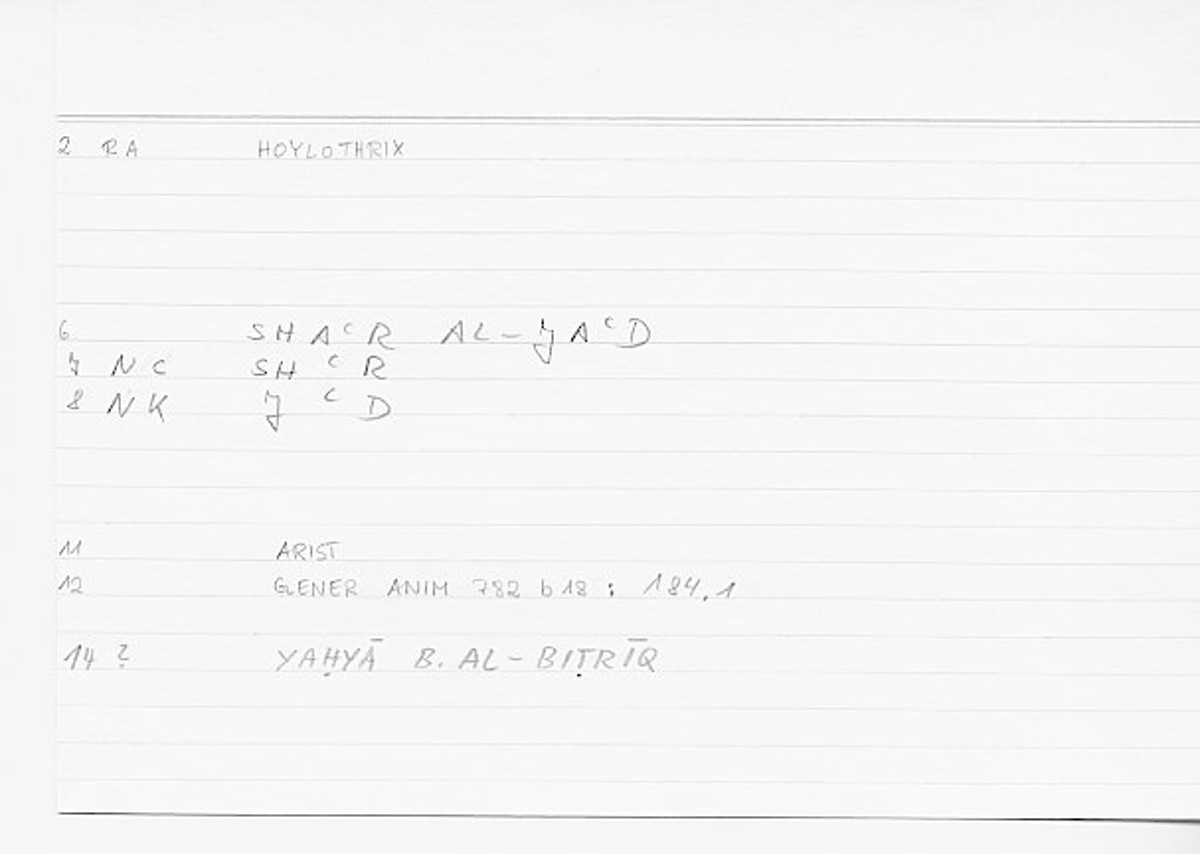 2 RA HOYLOTHRIX
6 SH AᶜR AL-JAᶜD
7 NC SH ᶜ R
8 NK J ᶜ D
11 ARIST
12 GENER ANIM 782 b 18 : 184,1
14 ? YAḤYĀ B. AL-BIṬRĪQ